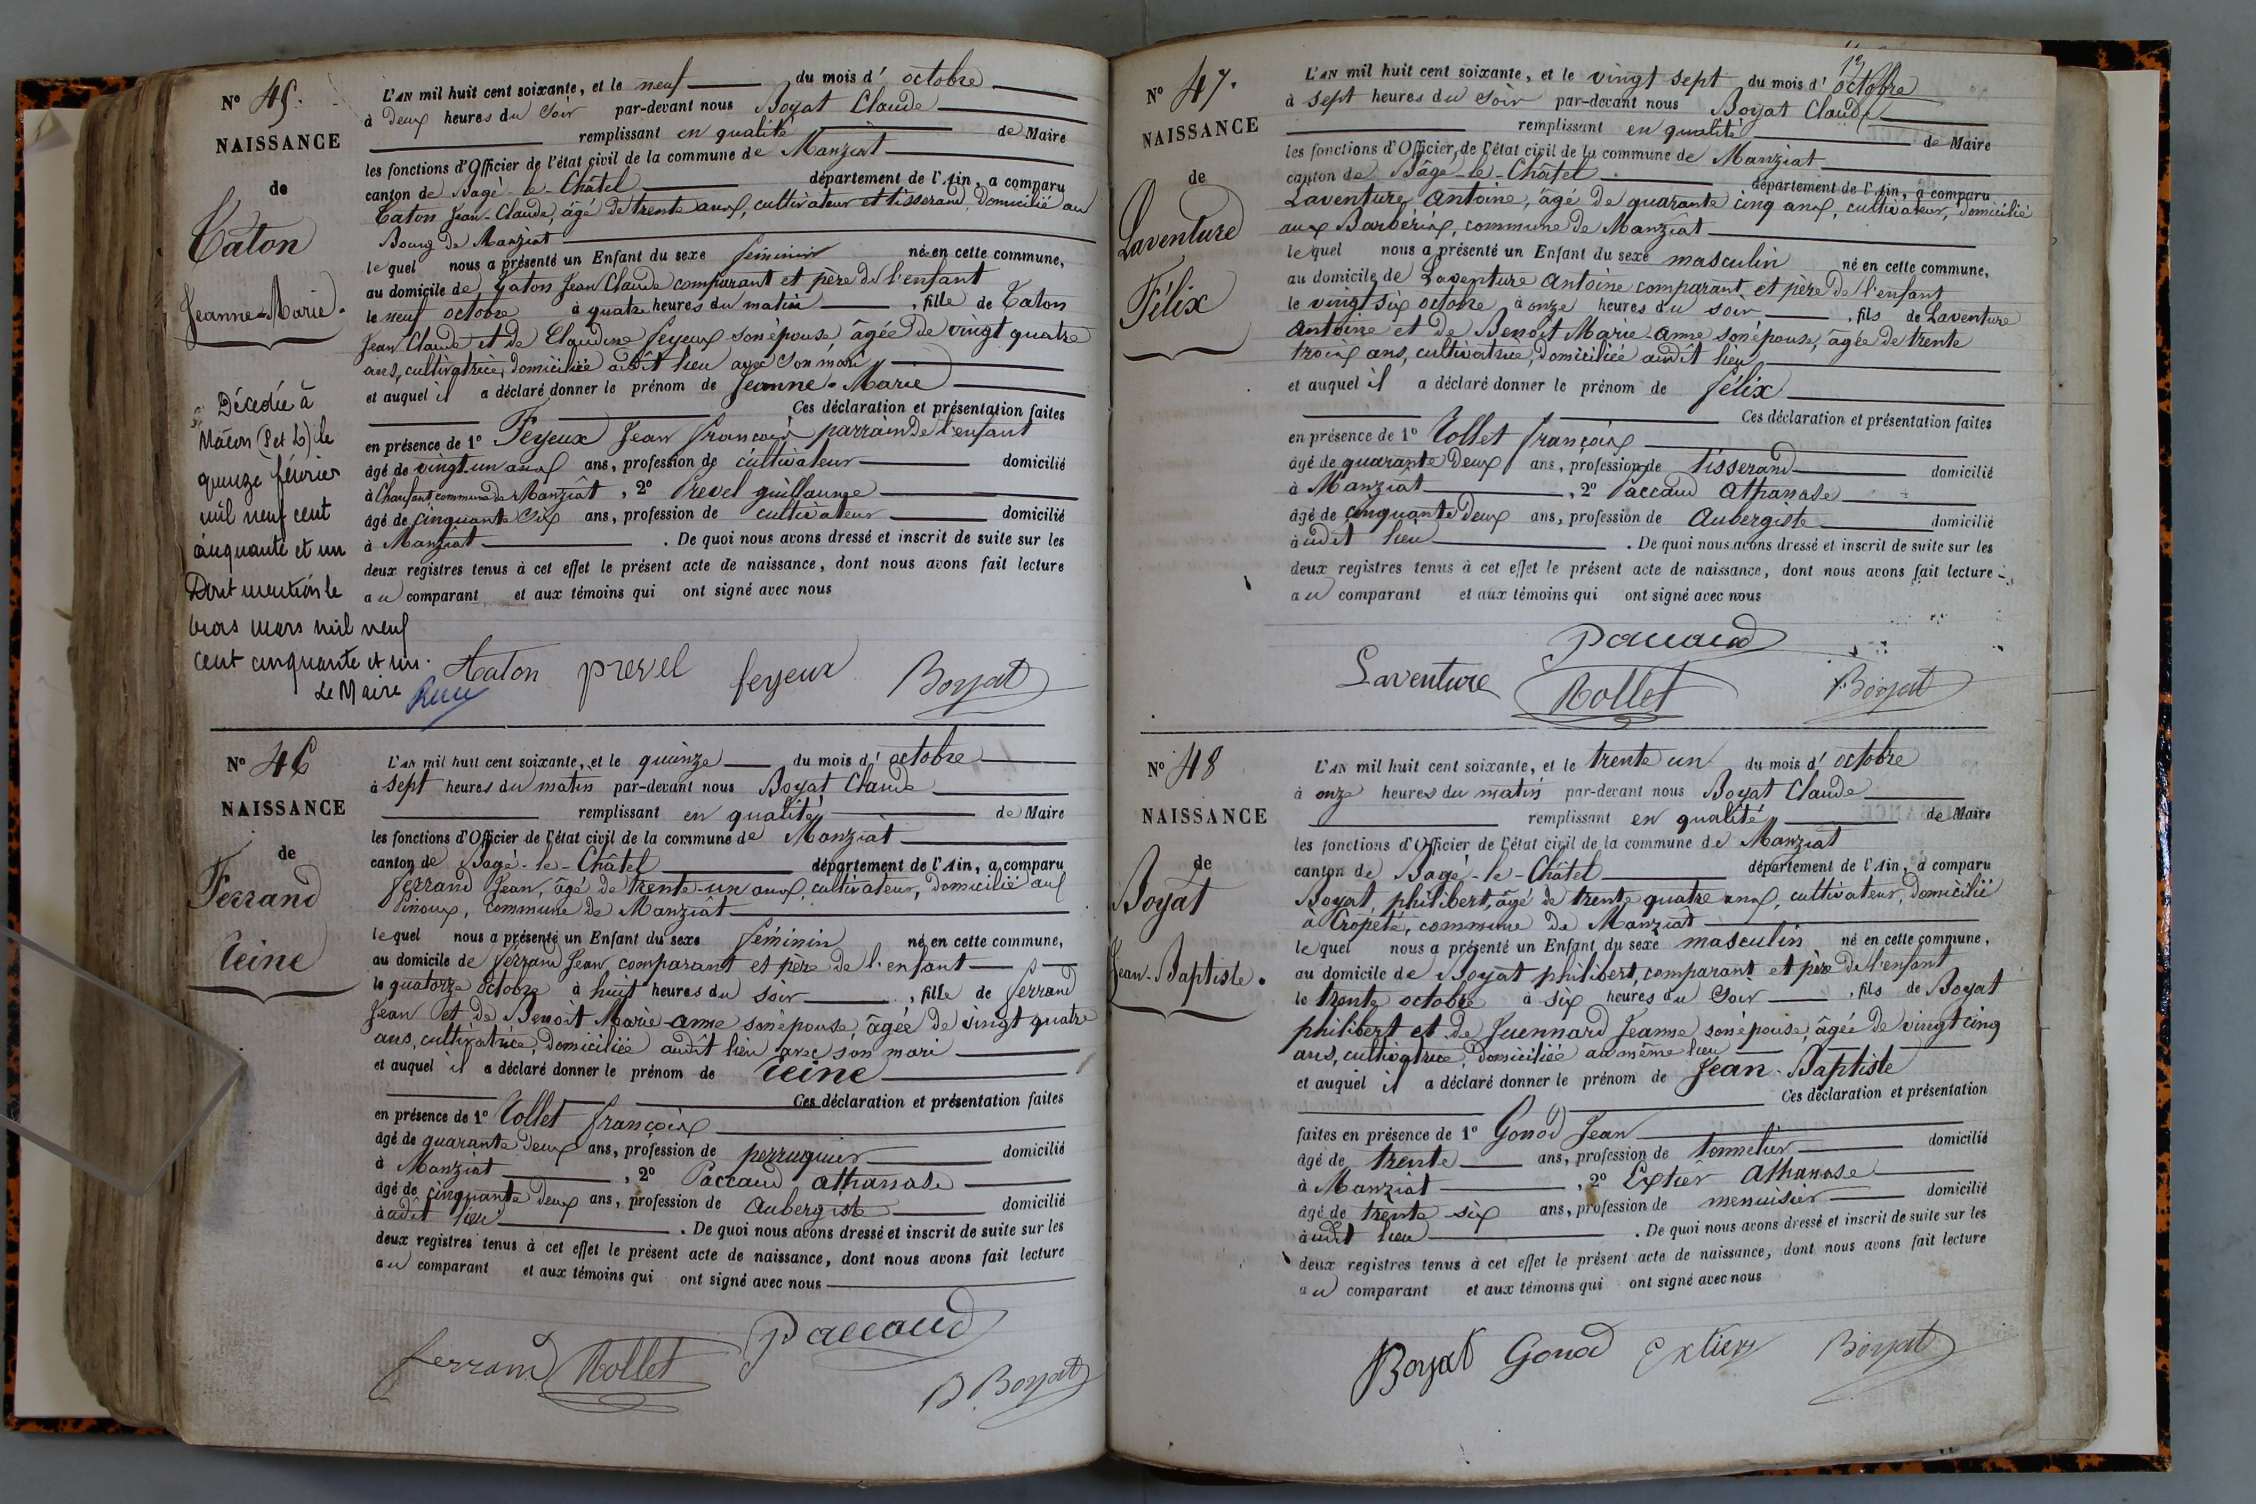 N° 45.
NAISSANCE
de
Caton
Jeanne-Marie.
Décédée à
Mâcon (S et L) le
quinze février
mil neuf cent
cinquante et un
Dont mention le
trois mars mil neuf
cent cinquante et un.
Le Maire
L'AN mil huit cent soixante, et le neuf du mois d'octobre
à deux heures du soir par-devant nous Boyat Claude
remplissant en qualité de Maire
les fonctions d'Officier de l'état civil de la commune de Manziat
canton de Bagé-le-Châtel département de l'Ain, a comparu
Caton Jean-Claude, âgé de trente ans, cultivateur et tisserand, domicilié au
Bourg de Manziat
lequel nous a présenté un Enfant du sexe féminin née en cette commune,
au domicile de Caton Jean Claude comparant et père de l'enfant
le neuf octobre à quatre heures du matin, fille de Caton
Jean Claude et de Claudine Feyeux son épouse, âgée de vingt quatre
ans, cultivatrice, domiciliée audit lieu avec son mari
et auquel il a déclaré donner le prénom de Jeanne-Marie
Ces déclaration et présentation faites
en présence de 1° Feyeux Jean François parrain de l'enfant
âgé de vingt-un ans ans, profession de cultivateur domicilié
à Chanfant commune de Manziat, 2° Prevel guillaume
âgé de cinquante six ans, profession de cultivateur domicilié
à Manziat. De quoi nous avons dressé et inscrit de suite sur les
deux registres tenus à cet effet le présent acte de naissance, dont nous avons fait lecture
au comparant et aux témoins qui ont signé avec nous
Caton prevel feyeux Boyat
N° 46
NAISSANCE
de
Ferrand
Reine
L'AN mil huit cent soixante, et le quinze du mois d'octobre
à sept heures du matin par-devant nous Boyat Claude
remplissant en qualité de Maire
les fonctions d'Officier de l'état civil de la commune de Manziat
canton de Bagé-le-Châtel département de l'Ain, a comparu
Ferrand Jean, âgé de trente-un ans, cultivateur, domicilié aux
Pinoux, commune de Manziat
lequel nous a présenté un Enfant du sexe féminin né en cette commune,
au domicile de Ferrand Jean comparant et père de l'enfant
le quatorze octobre à huit heures du soir, fille de Ferrand
Jean et de Benoit Marie-Anne son épouse, âgée de vingt quatre
ans, cultivatrice, domiciliée audit lieu avec son mari
et auquel il a déclaré donner le prénom de Reine
Ces déclaration et présentation faites
en présence de 1° Rollet françois
âgé de quarante deux ans, profession de perruquier domicilié
à Manziat, 2° Paccaud athanase
âgé de cinquante deux ans, profession de Aubergiste domicilié
à udit lieu. De quoi nous avons dressé et inscrit de suite sur les
deux registres tenus à cet effet le présent acte de naissance, dont nous avons fait lecture
au comparant et aux témoins qui ont signé avec nous
ferrand Rollet Paccaud B. Boyat
N° 47.
NAISSANCE
de
Laventure
Félix
L'AN mil huit cent soixante, et le vingt sept du mois d'octobre
à sept heures du soir par-devant nous Boyat Claude
remplissant en qualité de Maire
les fonctions d'Officier de l'état civil de la commune de Manziat
canton de Bâgé-le-Châtel département de l'Ain, a comparu
Laventure Antoine, âgé de quarante cinq ans, cultivateur, domicilié
aux Barbérix, commune de Manziat
lequel nous a présenté un Enfant du sexe masculin né en cette commune,
au domicile de Laventure Antoine comparant et père de l'enfant
le vingt six octobre à onze heures du soir, fils de Laventure
Antoine et de Benoit Marie-Anne son épouse, âgée de trente
trois ans, cultivatrice, domiciliée audit lieu
et auquel il a déclaré donner le prénom de félix
Ces déclaration et présentation faites
en présence de 1° Rollet françois
âgé de quarante deux ans, profession de tisserand domicilié
à Manziat, 2° Paccaud Athanase
âgé de cinquante deux ans, profession de Aubergiste domicilié
à udit lieu. De quoi nous avons dressé et inscrit de suite sur les
deux registres tenus à cet effet le présent acte de naissance, dont nous avons fait lecture
au comparant et aux témoins qui ont signé avec nous
Paccaud
Laventure Rollet Boyat
N° 48
NAISSANCE
de
Boyat
Jean-Baptiste.
L'AN mil huit cent soixante, et le trente un du mois d'octobre
à onze heures du matin par-devant nous Boyat Claude
remplissant en qualité de Maire
les fonctions d'Officier de l'état civil de la commune de Manziat
canton de Bagé-le-Châtel département de l'Ain, a comparu
Boyat philibert, âgé de trente quatre ans, cultivateur, domicilié
à Cropeté, commune de Manziat
lequel nous a présenté un Enfant du sexe masculin né en cette commune,
au domicile de Boyat philibert, comparant et père de l'enfant
le trente octobre à six heures du soir, fils de Boyat
philibert et de Juennard Jeanne son épouse, âgée de vingt cinq
ans, cultivatrice, domiciliée au même lieu
et auquel il a déclaré donner le prénom de Jean-Baptiste
Ces déclaration et présentation
faites en présence de 1° Gonod Jean
âgé de trente ans, profession de tonnelier domicilié
à Manziat, 2° Extier Athanase
âgé de trente six ans, profession de menuisier domicilié
à udit lieu. De quoi nous avons dressé et inscrit de suite sur les
deux registres tenus à cet effet le présent acte de naissance, dont nous avons fait lecture
au comparant et aux témoins qui ont signé avec nous
Boyat Gonod Extier Boyat